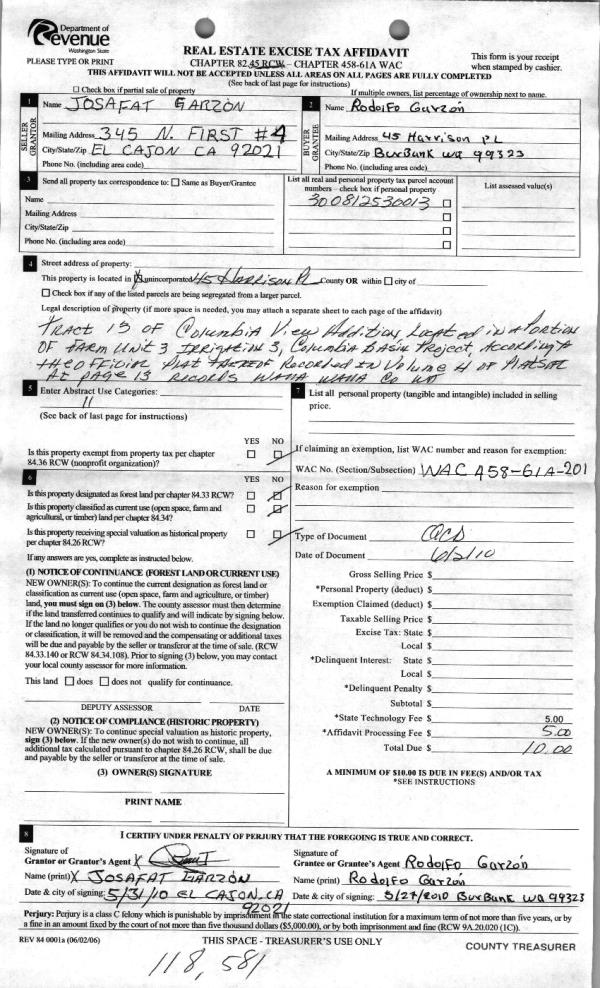 Department of
Revenue
Washington State
PLEASE TYPE OR PRINT
REAL ESTATE EXCISE TAX AFFIDAVIT
CHAPTER 82.45 RCW – CHAPTER 458-61A WAC
This form is your receipt
when stamped by cashier.
THIS AFFIDAVIT WILL NOT BE ACCEPTED UNLESS ALL AREAS ON ALL PAGES ARE FULLY COMPLETED
(See back of last page for instructions)
☐ Check box if partial sale of property
If multiple owners, list percentage of ownership next to name.
1 Name JOSAFAT GARZON
SELLER
GRANTOR
Mailing Address 345 N. FIRST #4
City/State/Zip EL CAJON CA 92021
Phone No. (including area code)
2 Name Rodolfo Garzón
BUYER
GRANTEE
Mailing Address 45 Harrison PL
City/State/Zip BurBank wa 99323
Phone No. (including area code)
3 Send all property tax correspondence to: ☐ Same as Buyer/Grantee
Name
Mailing Address
City/State/Zip
Phone No. (including area code)
List all real and personal property tax parcel account
numbers – check box if personal property
300812530013
List assessed value(s)
4 Street address of property:
This property is located in ☒ unincorporated 45 Harrison PL County OR within ☐ city of
☐ Check box if any of the listed parcels are being segregated from a larger parcel.
Legal description of property (if more space is needed, you may attach a separate sheet to each page of the affidavit)
TRACT 13 OF Columbia View Addition, Located in A Portion
OF FARM UNIT 3 IRRIGATION 3, Columbia Basin Project, According to
THE OFFICIAL PLAT THEREOF Recorded IN Volume H of Plats
At page 13 RECORDS WALLA WALLA Co WA
5 Enter Abstract Use Categories:
11
(See back of last page for instructions)
YES NO
Is this property exempt from property tax per chapter
84.36 RCW (nonprofit organization)?
6 YES NO
Is this property designated as forest land per chapter 84.33 RCW?
Is this property classified as current use (open space, farm and
agricultural, or timber) land per chapter 84.34?
Is this property receiving special valuation as historical property
per chapter 84.26 RCW?
If any answers are yes, complete as instructed below.
(1) NOTICE OF CONTINUANCE (FOREST LAND OR CURRENT USE)
NEW OWNER(S): To continue the current designation as forest land or
classification as current use (open space, farm and agriculture, or timber)
land, you must sign on (3) below. The county assessor must then determine
if the land transferred continues to qualify and will indicate by signing below.
If the land no longer qualifies or you do not wish to continue the designation
or classification, it will be removed and the compensating or additional taxes
will be due and payable by the seller or transferor at the time of sale. (RCW
84.33.140 or RCW 84.34.108). Prior to signing (3) below, you may contact
your local county assessor for more information.
This land ☐ does ☐ does not qualify for continuance.
DEPUTY ASSESSOR DATE
(2) NOTICE OF COMPLIANCE (HISTORIC PROPERTY)
NEW OWNER(S): To continue special valuation as historic property,
sign (3) below. If the new owner(s) do not wish to continue, all
additional tax calculated pursuant to chapter 84.26 RCW, shall be due
and payable by the seller or transferor at the time of sale.
(3) OWNER(S) SIGNATURE
PRINT NAME
7 List all personal property (tangible and intangible) included in selling
price.
If claiming an exemption, list WAC number and reason for exemption:
WAC No. (Section/Subsection) WAC 458-61A-201
Reason for exemption
Type of Document QCD
Date of Document 6/2/10
Gross Selling Price $
*Personal Property (deduct) $
Exemption Claimed (deduct) $
Taxable Selling Price $
Excise Tax: State $
Local $
*Delinquent Interest: State $
Local $
*Delinquent Penalty $
Subtotal $
*State Technology Fee $ 5.00
*Affidavit Processing Fee $ 5.00
Total Due $ 10.00
A MINIMUM OF $10.00 IS DUE IN FEE(S) AND/OR TAX
*SEE INSTRUCTIONS
8 I CERTIFY UNDER PENALTY OF PERJURY THAT THE FOREGOING IS TRUE AND CORRECT.
Signature of
Grantor or Grantor's Agent X
Name (print) X JOSAFAT GARZON
Date & city of signing: 5/31/10 EL CAJON, CA
92021
Signature of
Grantee or Grantee's Agent Rodolfo Garzón
Name (print) Rodolfo Garzón
Date & city of signing: 5/27/2010 BurBank wa 99323
Perjury: Perjury is a class C felony which is punishable by imprisonment in the state correctional institution for a maximum term of not more than five years, or by
a fine in an amount fixed by the court of not more than five thousand dollars ($5,000.00), or by both imprisonment and fine (RCW 9A.20.020 (1C)).
REV 84 0001a (06/02/06)
THIS SPACE - TREASURER'S USE ONLY
COUNTY TREASURER
118,581